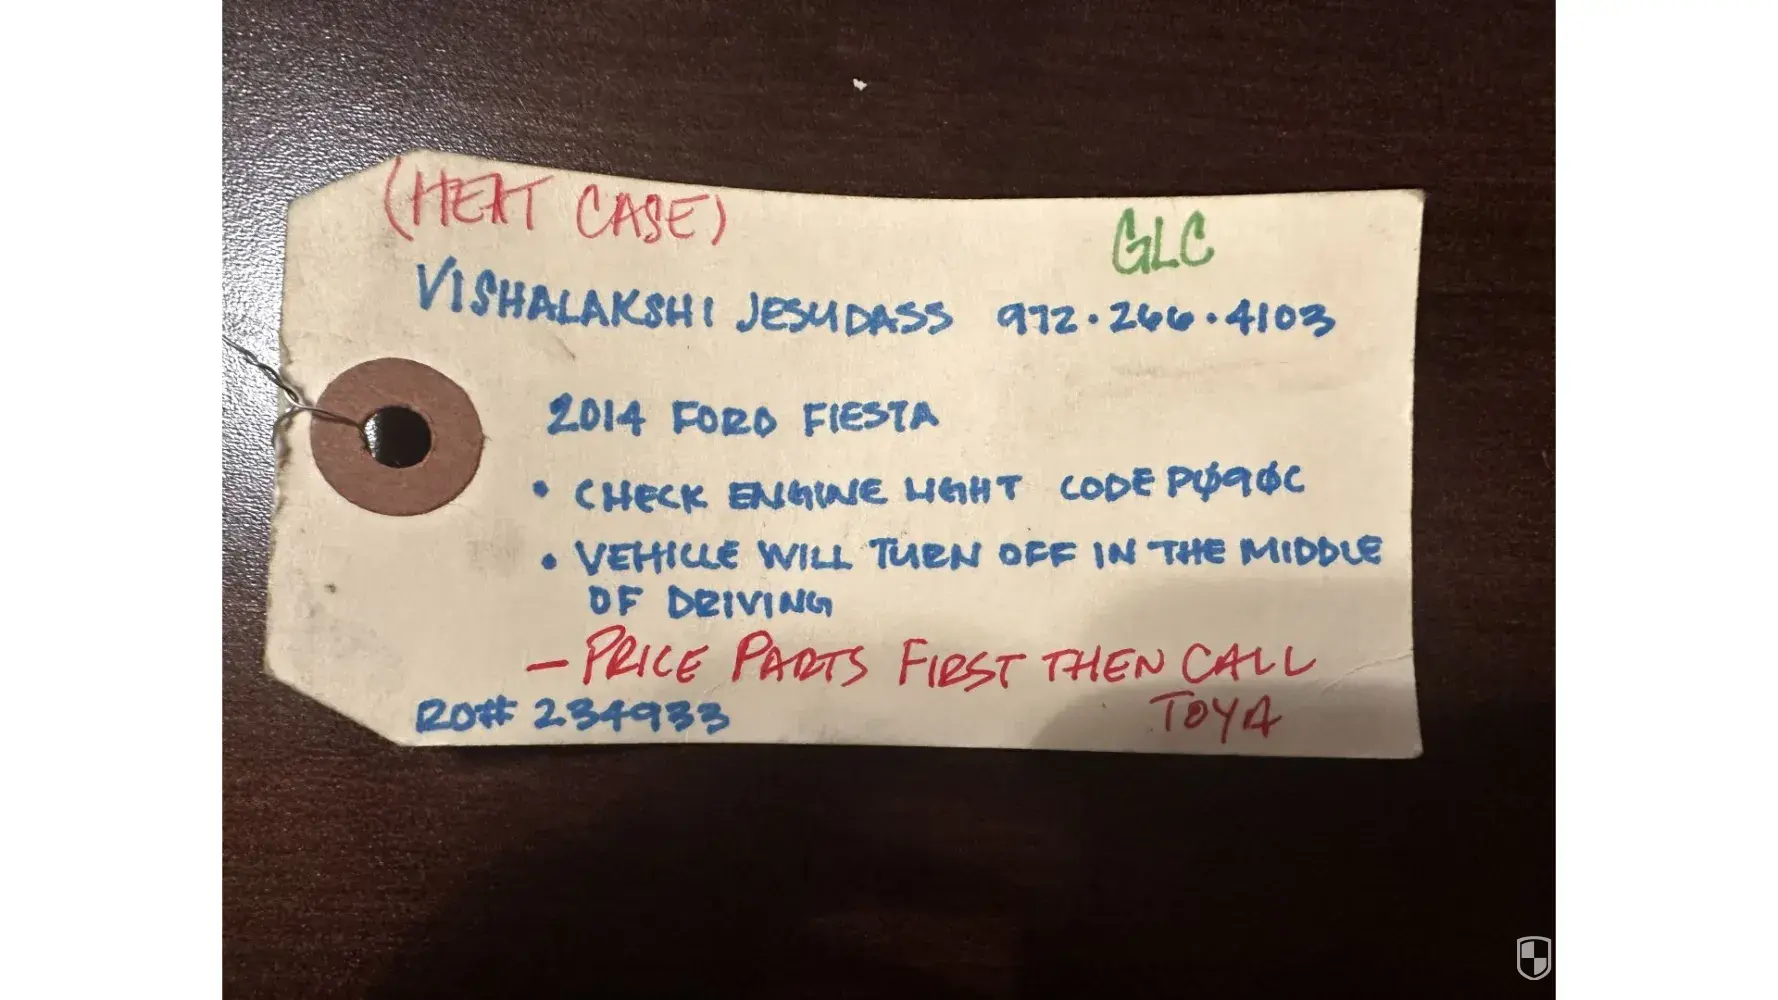 (HEAT CASE)
GLC
VISHALAKSHI JESUDASS 972·266·4103
2014 FORD FIESTA
• CHECK ENGINE LIGHT CODE P090C
• VEHICLE WILL TURN OFF IN THE MIDDLE
OF DRIVING
– PRICE PARTS FIRST THEN CALL
TOYA
RO# 234933